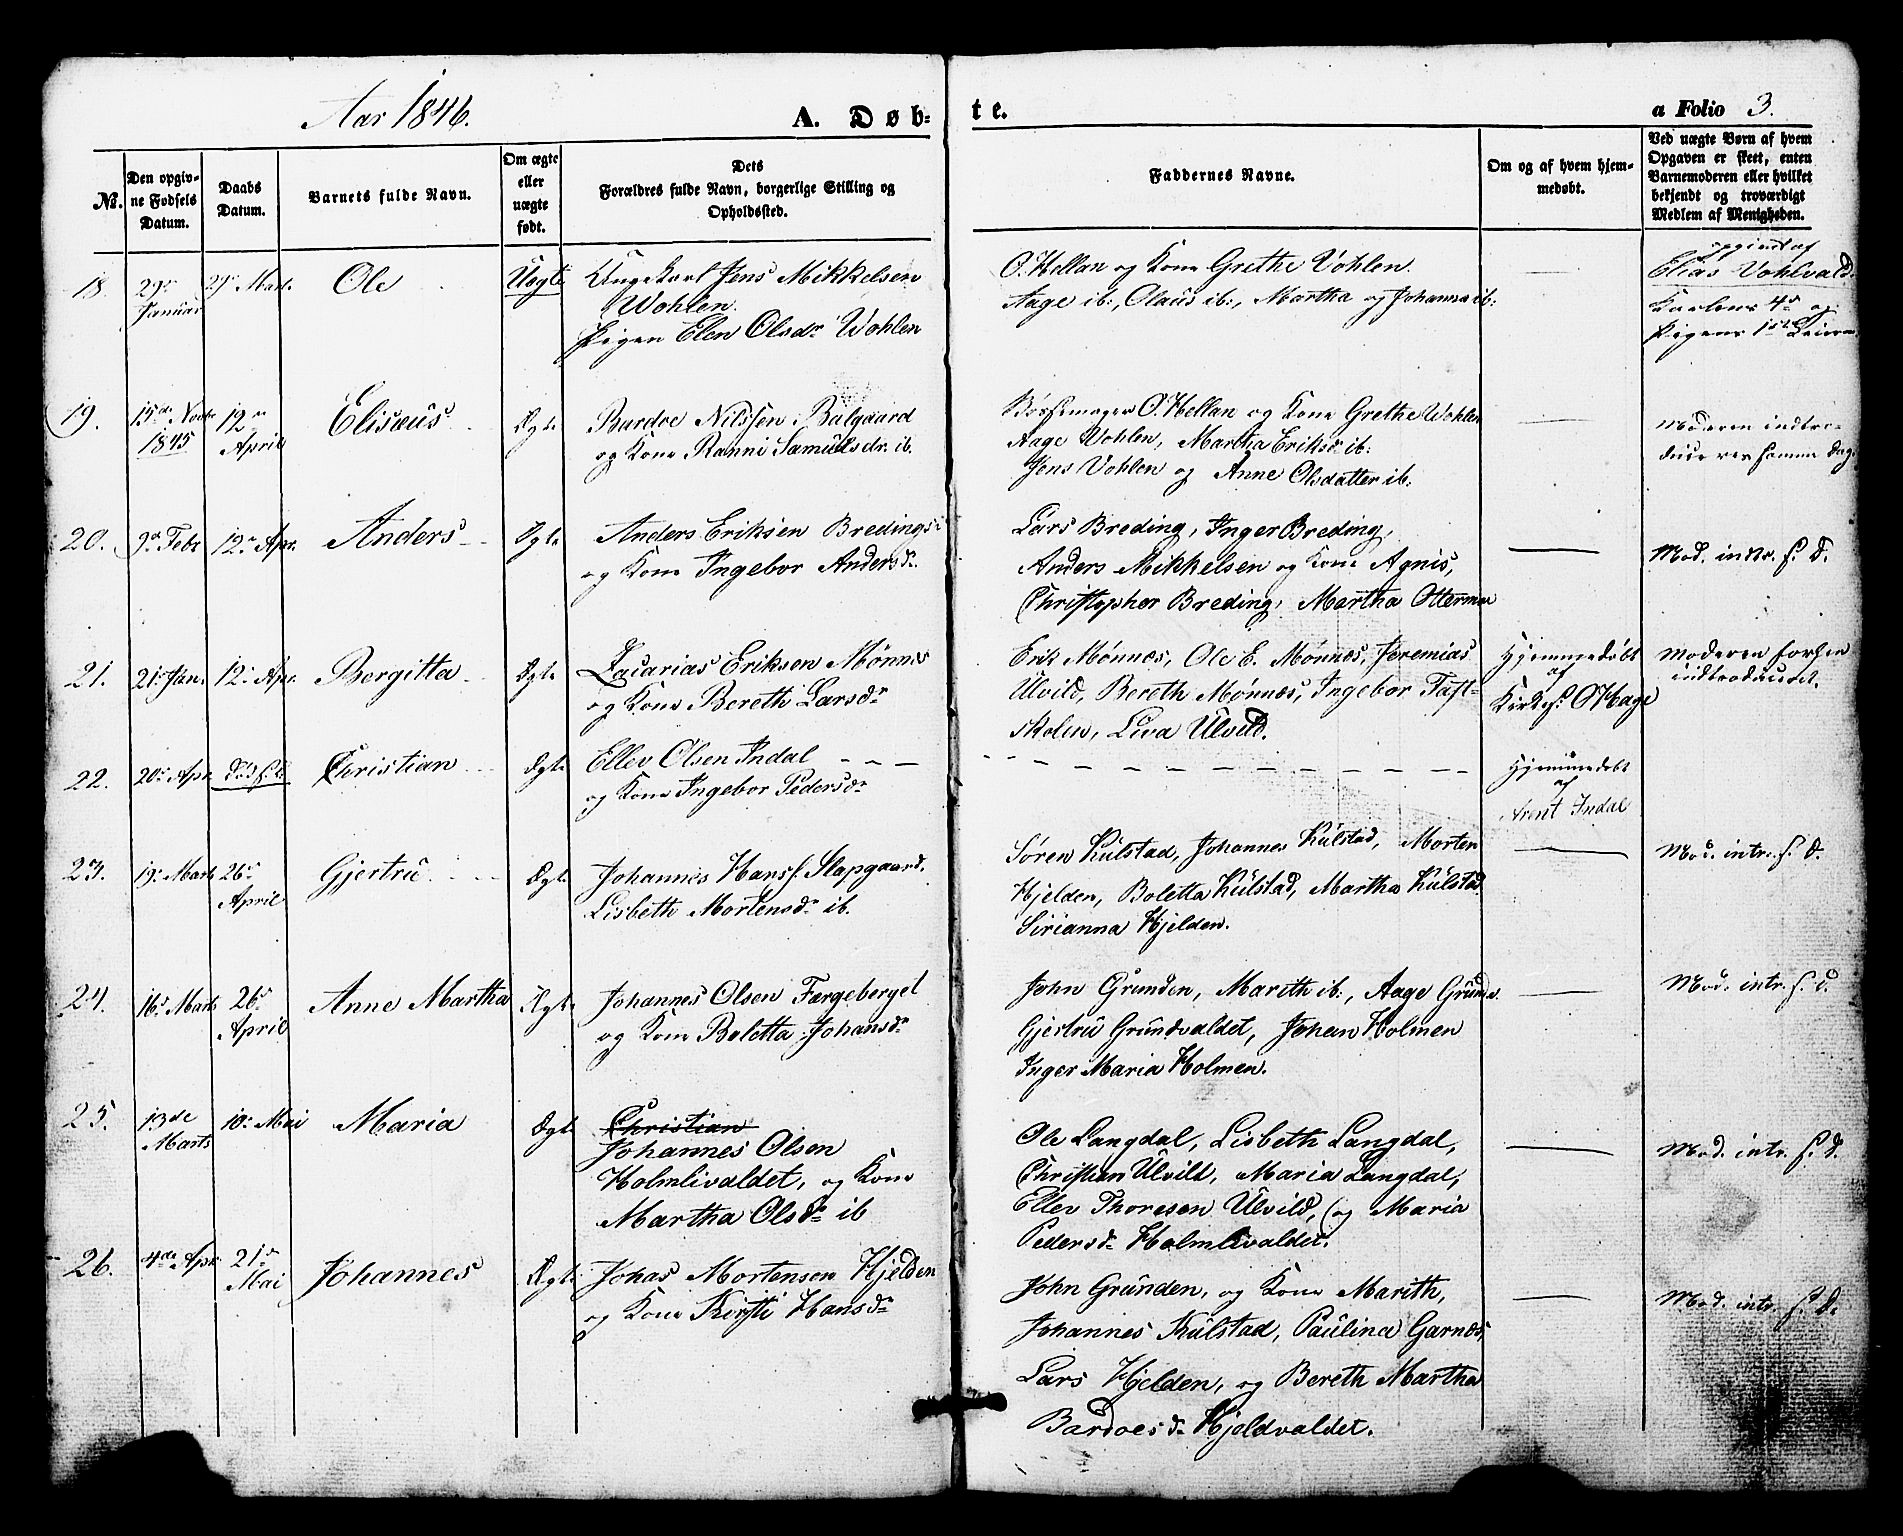 Aar 1846.
A. Døb-
te.
a Folio 3.
No.
Den opgiv-
ne Fødsels
Datum.
Daabs
Datum.
Barnets fulde Navn.
Om ægte
eller
uægte
født.
Dets
Forældres fulde Navn, borgerlige Stilling og
Opholdssted.
Faddernes Navne.
Om og af hvem hjem-
medøbt.
Ved uægte Børn af hvem
Opgaven er skeet, enten
Barnemoderen eller hvilket
bekjendt og troværdigt
Medlem af Menigheden.
18. 29de Januar 29de Mart. Ole Uægte
Ungekarl Jens Mikkelsen
Wohlen.
Pigen Elen Olsdr Wohlen
O. Hellan og Kone Grethe Vohlen.
Aage ib:, Olaus ib:, Martha og Johanna ib:
opgivet af
Elias Vohlvald.
Karlens 4de og
Pigens 1ste Leierm.
19. 15de Novbr 1845 12te April Elisæus Ægte
Bardoe Nilssen Balgaard
og Kone Ranni Samuelsdr. ib.
Børsemager O. Hellan og Kone Grethe Wohlen
Aage Vohlen, Martha Eriksdr ib:
Jens Vohlen og Anne Olsdatter ib:
Moderen indtro-
duceres samme Dag.
20. 9de Febr 12te Apr. Anders Ægte
Anders Eriksen Bredings
og Kone Ingebor Andersdr.
Lars Breding, Inger Breding,
Anders Mikkelsen og Kone Agnis,
Christopher Breding, Martha Ottermoe
Mod. intr. s. D.
21. 21de Jan. 12te Apr. Bergitta Ægte
Zacarias Eriksen Mønnes
og Kone Bereth Larsdr
Erik Mønnes, Ole E. Mønnes, Jeremias
Ulvild, Bereth Mønnes, Ingebor Tast-
skolen, Liva Ulvild.
Hjemmedøbt
af
Kirkes. O Hage
Moderen forhen
indtroduceret.
22. 20de Apr. Død s. D. Christian Ægte
Ellev Olsen Indal
og Kone Ingebor Pedersdr
Hjemmedøbt
af
Arent Indal
23. 19de Marts 26de April Gjertru Ægte
Johannes Hanss. Slapgaard.
Lisbeth Mortensdr ib.
Søren Kulstad, Johannes Kulstad, Morten
Hjelden, Boletta Kulstad, Martha Kulstad
Sirianna Hjelden.
Mod. intr. s. D.
24. 16de Marts 26de April Anne Martha Ægte
Johannes Olsen Færgeberget
og Kone Boletta Johansdr
John Grunden, Marith ib:, Aage Grunden
Gjertru Grundvaldet, Johan Holmen
Inger Maria Holmen.
Mod. intr. s. D.
25. 13de Marts 10de Mai Maria Ægte
Christian
Johannes Olsen
Holmlivaldet, og Kone
Martha Olsdr ib
Ole Langdal, Lisbeth Langdal,
Christian Ulvild, Maria Langdal,
Ellev Thoresen Ulvild, og Maria
Pedersdr Holmlivaldet.
Mod. intr. s. D.
26. 4de Apr. 21de Mai Johannes Ægte
Johas Mortensen Hjelden
og Kone Kirsti Hansdr
John Grunden, og Kone Marith,
Johannes Kulstad, Paulina Garnæs,
Lars Hjelden, og Bereth Martha
Bardoesdr Hjeldvaldet.
Mod. intr. s. D.